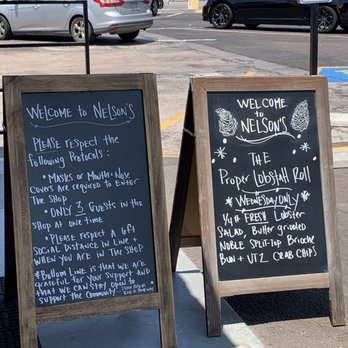 Welcome to Nelson's
Please respect the
following Protocols:
* Masks or Mouth + Nose
covers are required to enter
The Shop
* Only 3 Guests in the
shop at one time
* Please respect a 6ft
social distance in line +
when you are in the shop
*Bottom line is that we are
grateful for your support and
that we can stay open to
support the community
WELCOME TO
NELSON'S
THE
Proper Lobstah Roll
Wednesday Only!
1/4# FRESH Lobster
Salad, Butter griddled
Noble Split-Top Brioche
Bun + UTZ Crab Chips